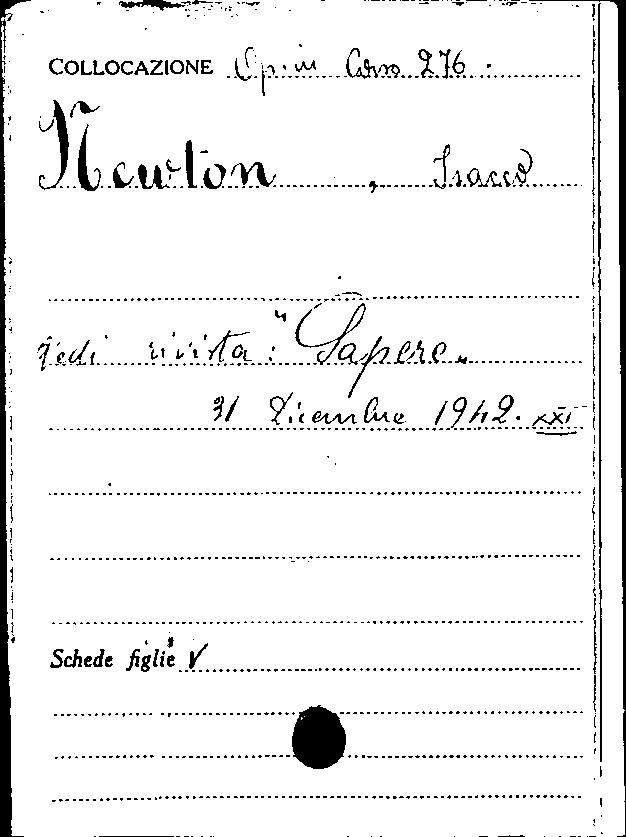 COLLOCAZIONE Op. in Corso 276.
Newton, Isacco
Vedi rivista: "Sapere„
31 Dicembre 1942. XXI
Schede figlie V